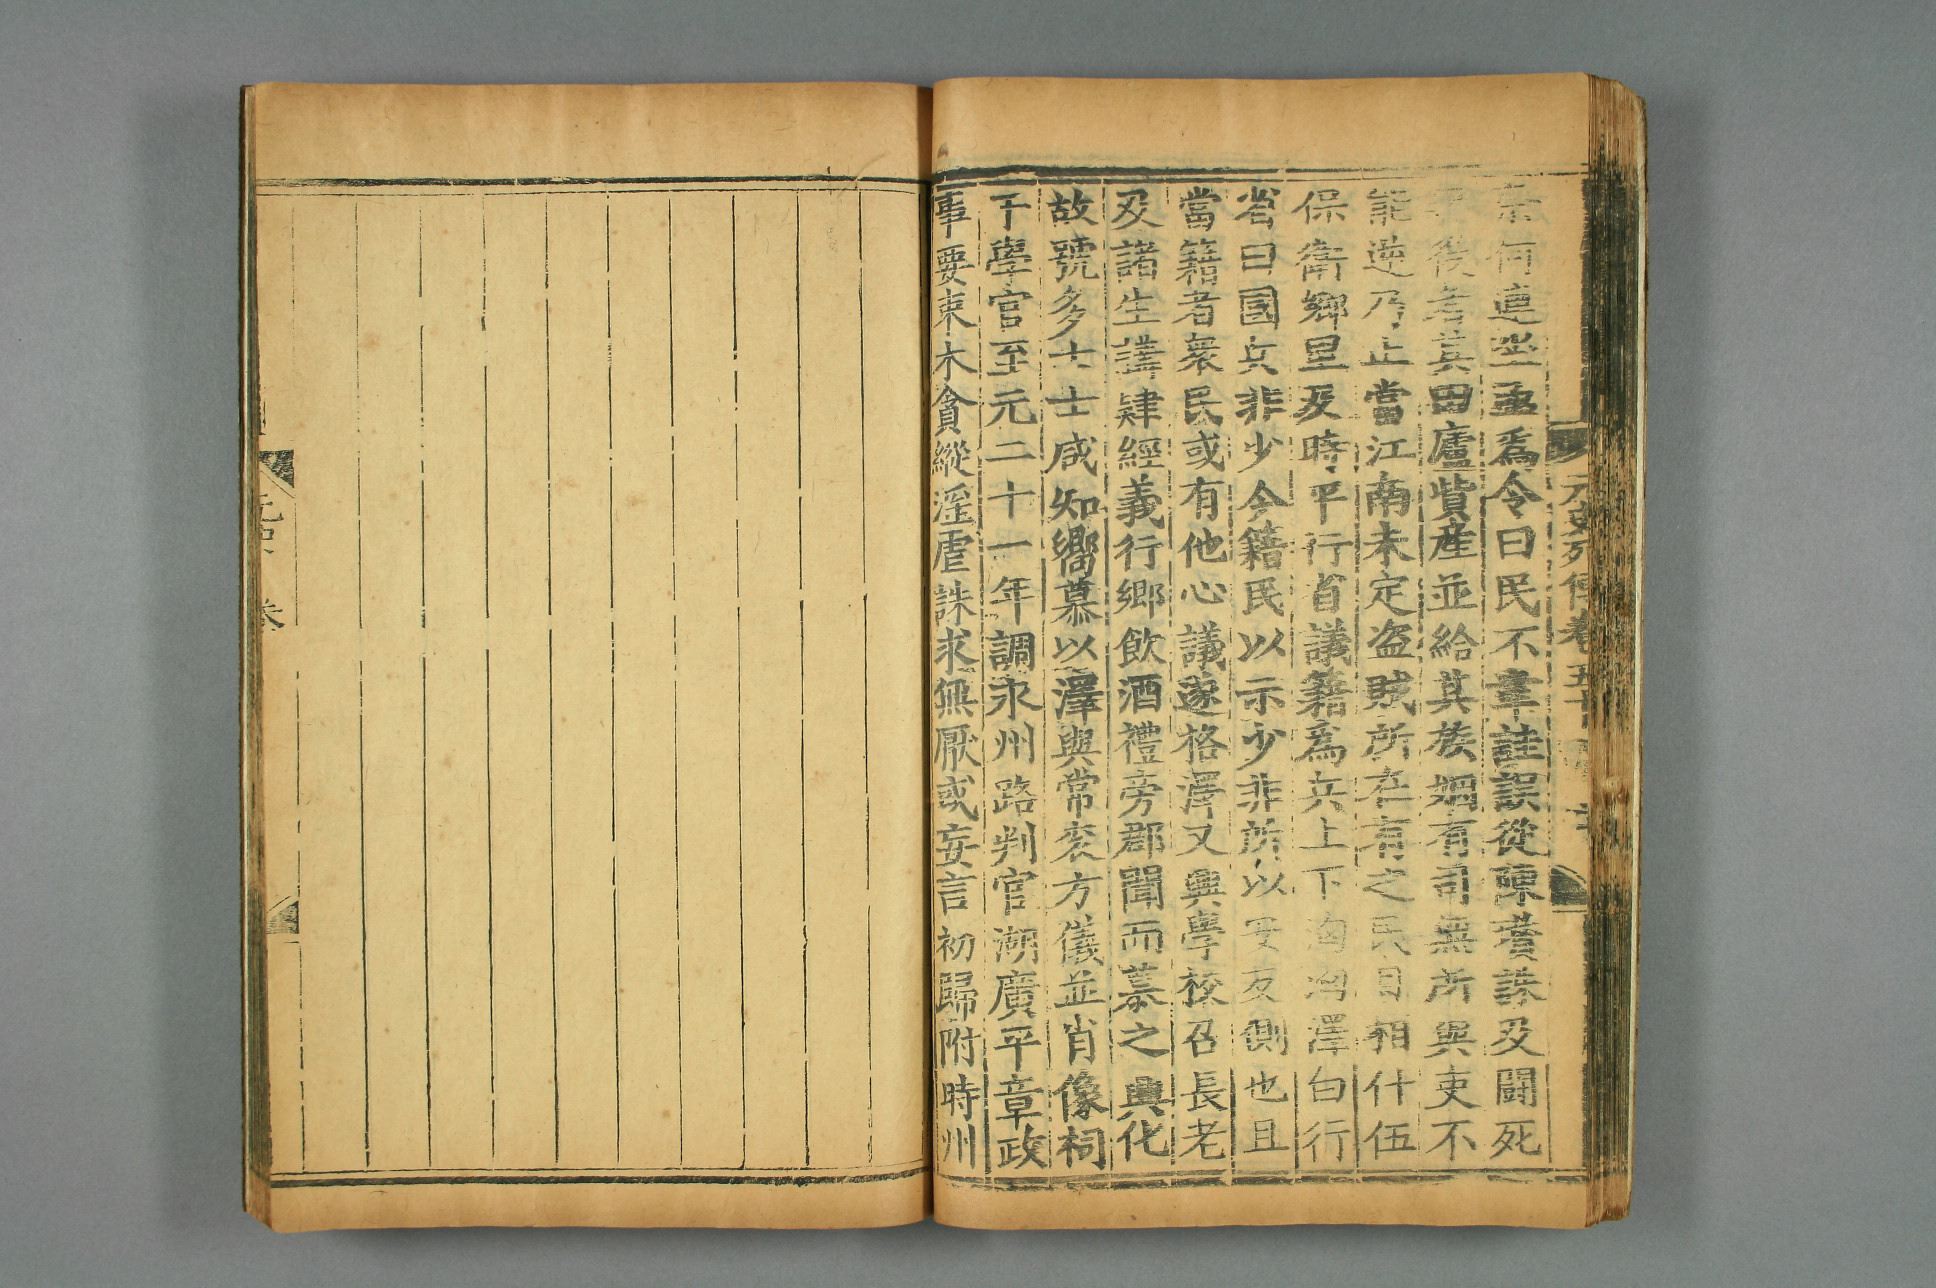 宗何連坐亟爲令曰民不幸詿誤從陳瓚誅及鬭死
者其田廬貲産並給其族姻有司無所與吏不
能逆乃止當江南未定盗賊所在有之民自相什伍
保衛郷里及時平行省議籍爲兵上下洶洶澤白行
省曰國兵非少今籍民以示少非所以安反側也且
當籍者衆民或有他心議遂格澤又興學校召長老
及諸生講肄經義行郷飲酒禮旁郡聞而慕之興化
故號多士士咸知嚮慕以澤與常衮方儀並肖像祠
于學官至元二十一年調永州路判官湖廣平章政
事要束木貪縱淫虐誅求無厭或妄言初歸附時州
元史列傳卷五十
元史 卷